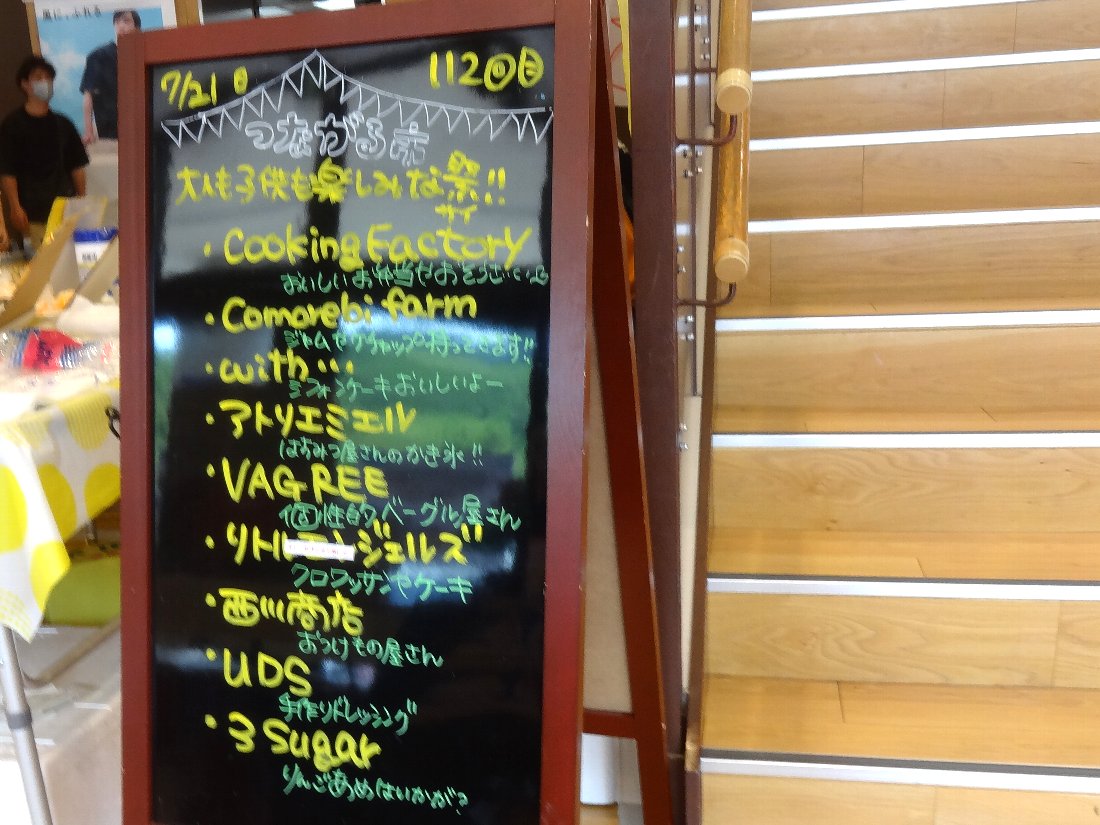 風に、ふれる
7/21日 112回目
つながる市
大人も子供も楽しみな祭!!
サイ
・Cooking Factory
おいしいお弁当やおそうざい
・Comorebi farm
ジャムやケチャップ持ってきてます!!
・with…
シフォンケーキおいしいよー
・アトリエミエル
はちみつ屋さんのかき氷!!
・VAGREE
個性的ベーグル屋さん
・リトルエンジェルズ
クロワッサンやケーキ
・西川商店
おつけもの屋さん
・UDS
手作りドレッシング
・3 Sugar
りんごあめはいかが?